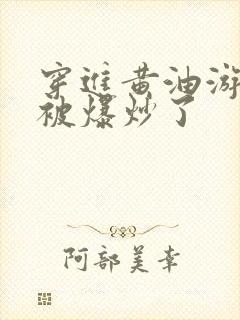 穿進黄油游
被爆炒了
阿部美幸